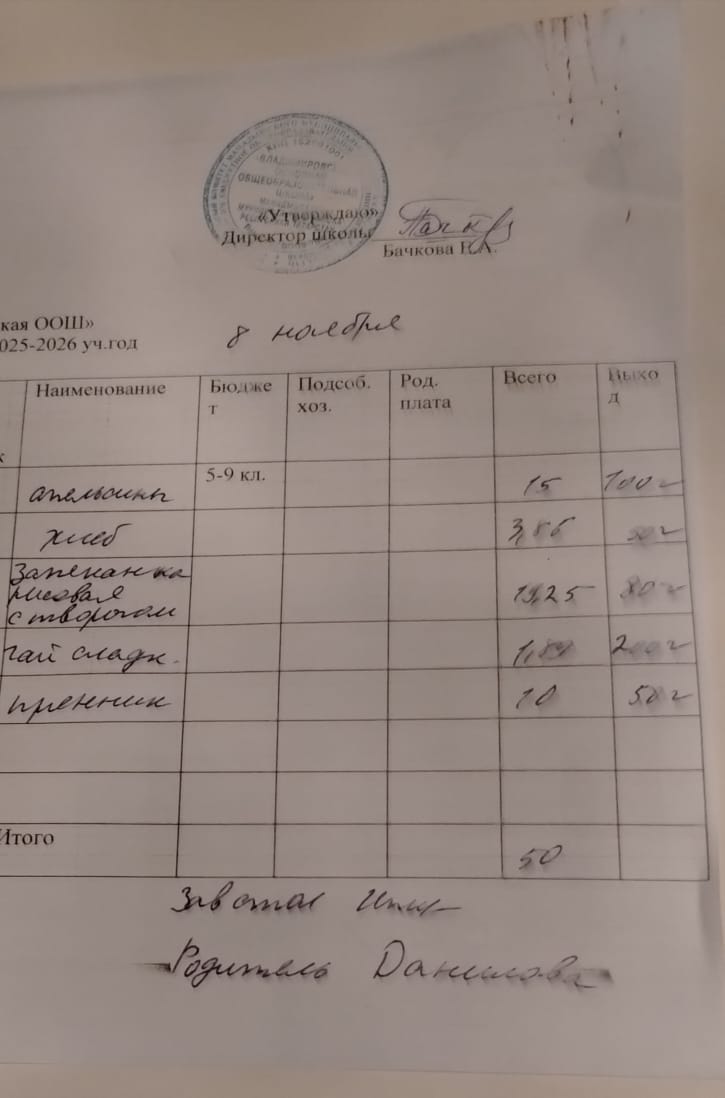 ОБЩЕОБРАЗОВАТЕЛЬНАЯ
«Утверждаю»
Директор школы
Бачкова Р.А.
кая ООШ»
025-2026 уч.год
8 ноября
Наименование Бюджет Подсоб. хоз. Род. плата Всего Выход
5-9 кл.
апельсины 15 100 г
хлеб 3,86 50 г
Запеканка
рисовая
с творогом 19,25 80 г
чай сладк. 1,89 200 г
пренник 10 50 г
Итого 50
Зав стол
Родитель Данилова